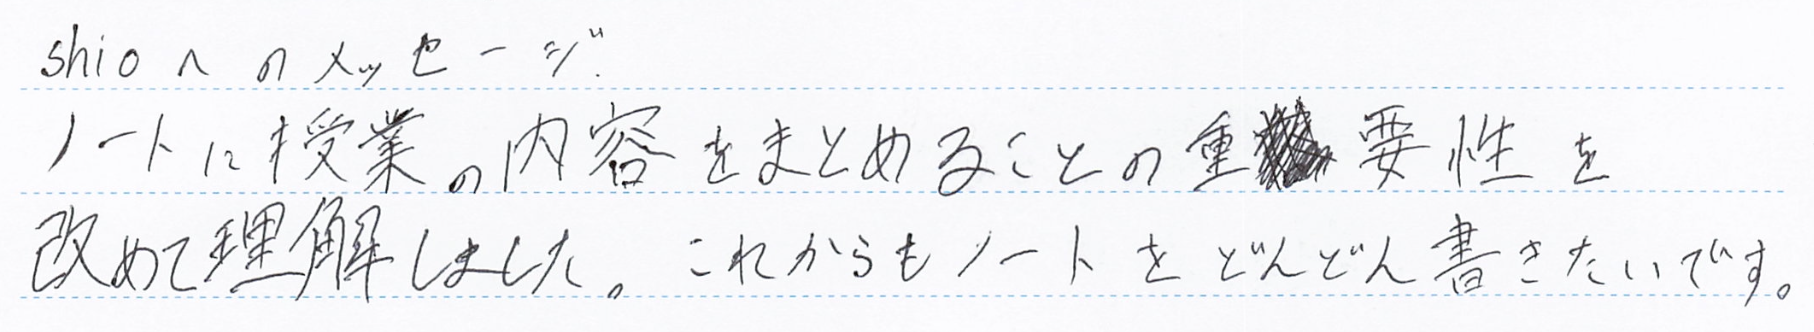 shioへのメッセージ
ノートに授業の内容をまとめることの重要性を
改めて理解しました。これからもノートをどんどん書きたいです。